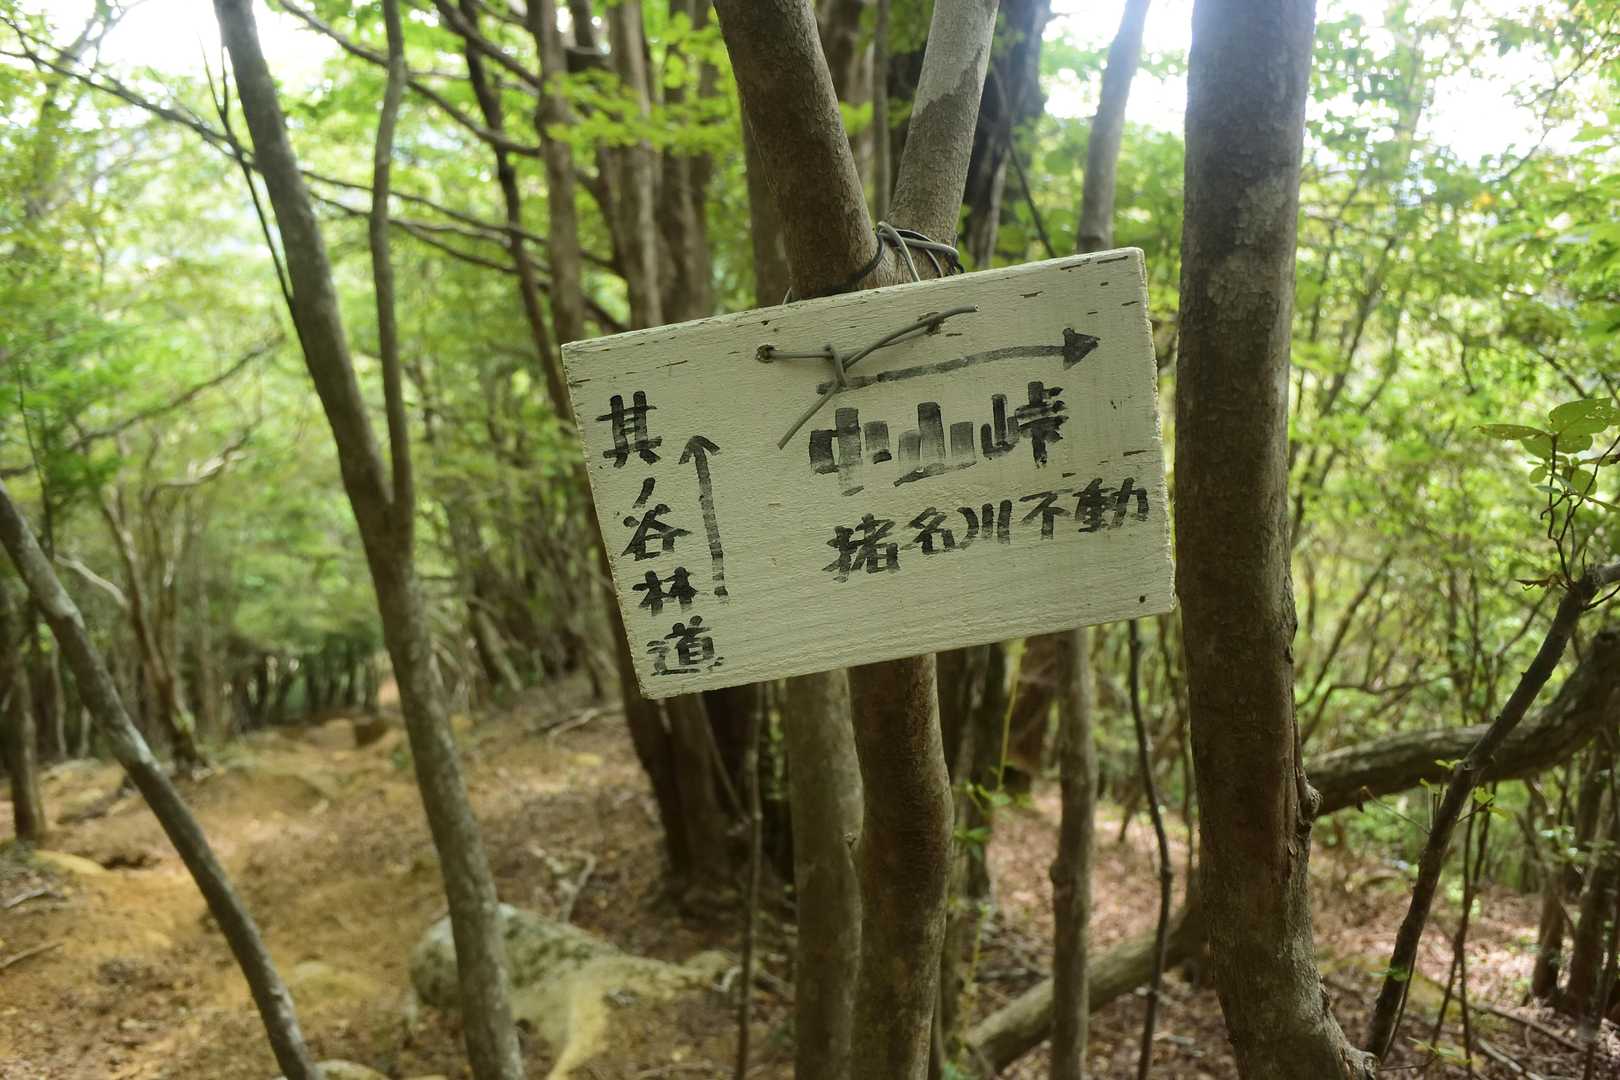 其ノ谷林道
↑
→
中山峠
猪名川不動